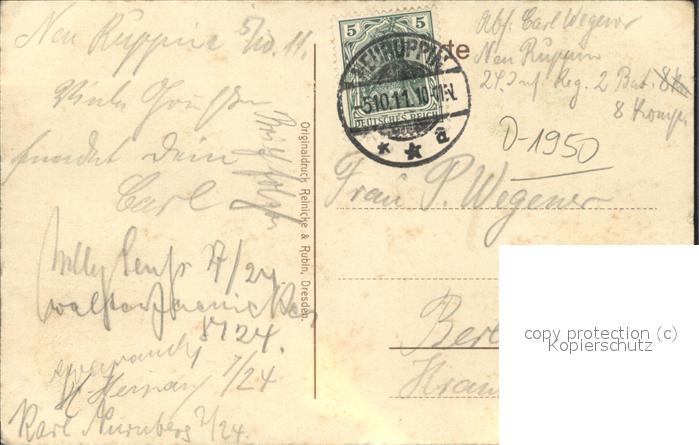 Neu Ruppin 5/10.11.
Viele Grüße
sendet Dein
Carl
Brief folgt
Willy 7/24
8/24.
7/24
Karl Nürnberg 7/24.
Originaldruck Reinicke & Rubin, Dresden.
5 5
DEUTSCHES REICH
NEURUPPIN
5.10.11.10-11V.
* ★ a
rte
Abs. Carl Wegener
Neu Ruppin
24. Inf. Reg. 2 Bat.
8 Komp.
D-1950
Frau P. Wegener
Berl
copy protection (c)
Kopierschutz